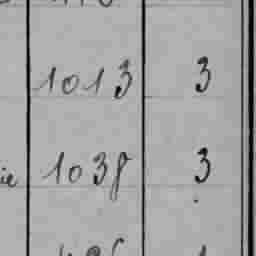 1013 3
ie 1038 3